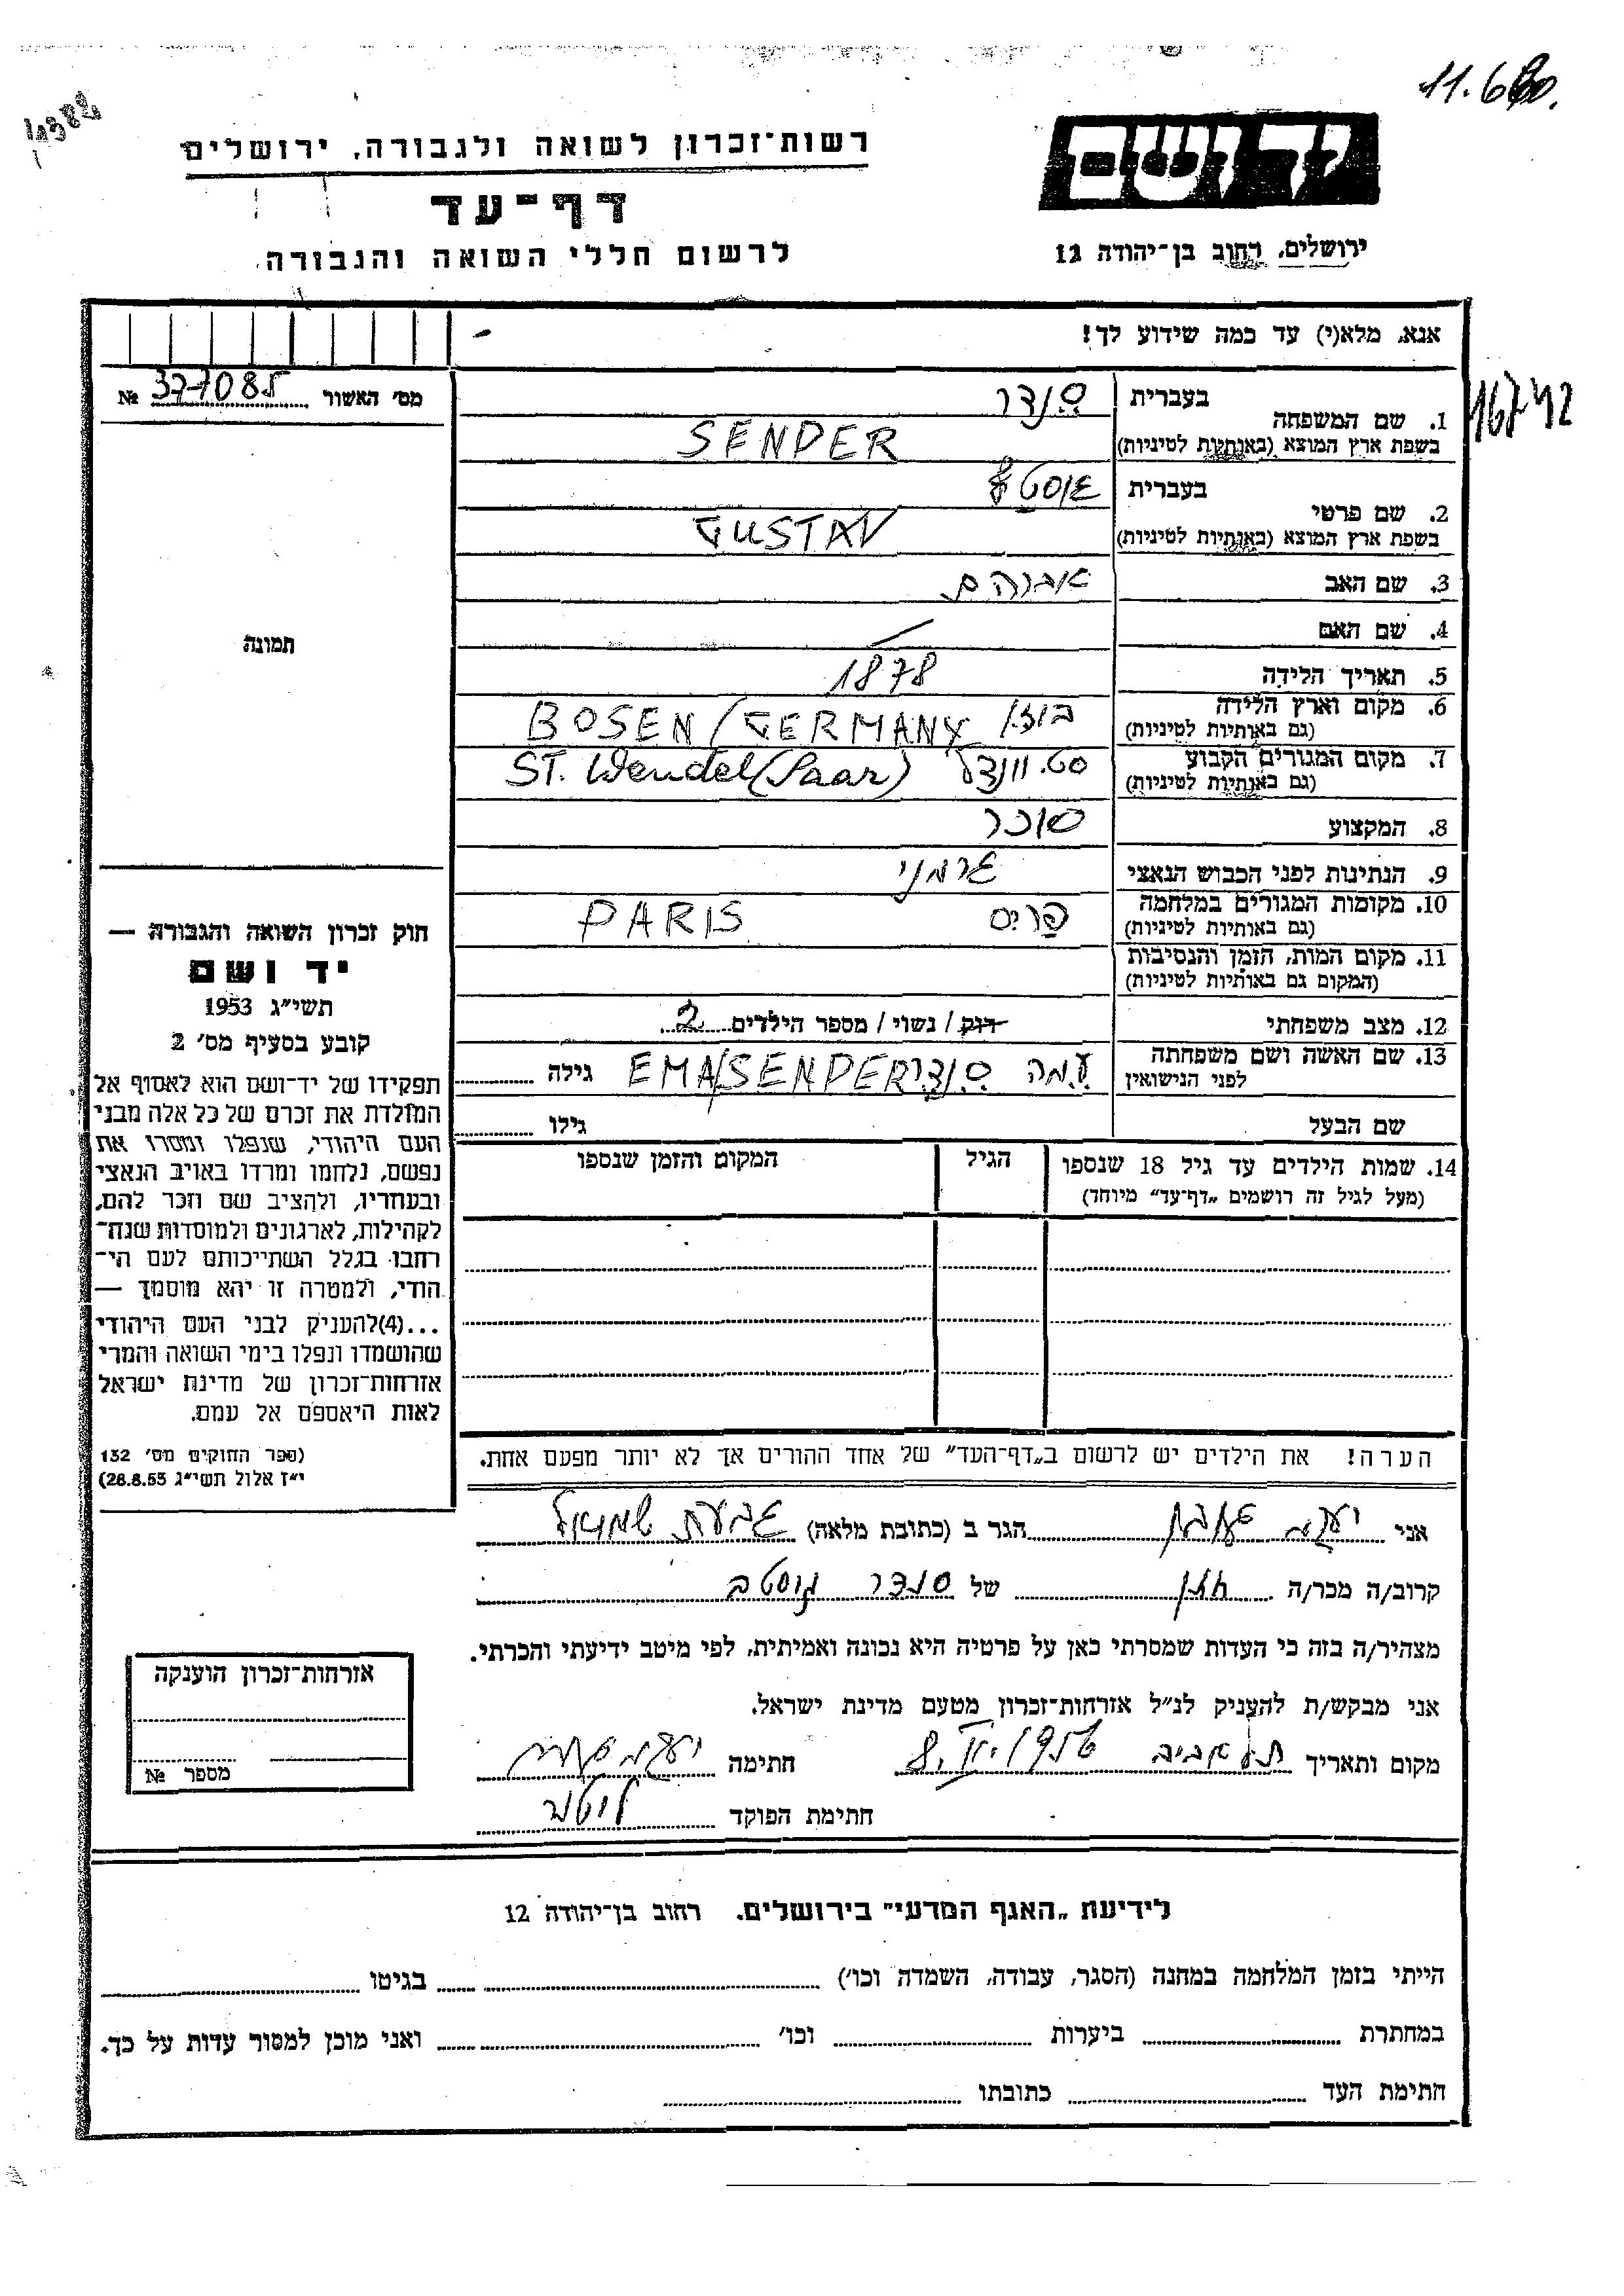 11.6
רשות־זכרון לשואה ולגבורה, ירושלים
יד ושם
דף־עד
לרשום חללי השואה והגבורה
ירושלים, רחוב בן־יהודה 12
אנא, מלא(י) עד כמה שידוע לך!
16742
מס׳ האשור 377085 №
תמונה
1. שם המשפחה
בעברית סנדר
בשפת ארץ המוצא (באותיות לטיניות) SENDER
2. שם פרטי
בעברית גוסטב
בשפת ארץ המוצא (באותיות לטיניות) GUSTAV
3. שם האב אברהם
4. שם האם —
5. תאריך הלידה 1878
6. מקום וארץ הלידה בוזן / BOSEN / GERMANY
(גם באותיות לטיניות)
7. מקום המגורים הקבוע סט. וונדל ST. Wendel (Saar)
(גם באותיות לטיניות)
8. המקצוע סוכר
9. הנתינות לפני הכבוש הנאצי גרמני
10. מקומות המגורים במלחמה פריס PARIS
(גם באותיות לטיניות)
11. מקום המות, הזמן והנסיבות
(המקום גם באותיות לטיניות)
12. מצב משפחתי רוק / נשוי / מספר הילדים 2
13. שם האשה ושם משפחתה עמה סנדר EMA/SENDER גילה
לפני הנישואין
שם הבעל גילו
14. שמות הילדים עד גיל 18 שנספו הגיל המקום והזמן שנספו
(מעל לגיל זה רושמים „דף־עד״ מיוחד)
חוק זכרון השואה והגבורה —
יד ושם
תשי״ג 1953
קובע בסעיף מס׳ 2
תפקידו של יד־ושם הוא לאסוף אל
המולדת את זכרם של כל אלה מבני
העם היהודי, שנפלו ומסרו את
נפשם, נלחמו ומרדו באויב הנאצי
ובעוזריו, ולהציב שם וזכר להם,
לקהילות, לארגונים ולמוסדות שנח־
רבו בגלל השתייכותם לעם הי־
הודי, ולמטרה זו יהא מוסמך —
...(4)להעניק לבני העם היהודי
שהושמדו ונפלו בימי השואה והמרי
אזרחות־זכרון של מדינת ישראל
לאות היאספם אל עמם.
(ספר החוקים מס׳ 132
י״ז אלול תשי״ג 28.8.53)
הערה! את הילדים יש לרשום ב„דף־העד״ של אחד ההורים אך לא יותר מפעם אחת.
אני יעקב הגר ב (כתובת מלאה) גבעת שמואל
קרוב/ה מכר/ה חתן של סנדר גוסטב
מצהיר/ה בזה כי העדות שמסרתי כאן על פרטיה היא נכונה ואמיתית, לפי מיטב ידיעתי והכרתי.
אני מבקש/ת להעניק לנ״ל אזרחות־זכרון מטעם מדינת ישראל.
מקום ותאריך תל אביב חתימה
חתימת הפוקד
אזרחות־זכרון הוענקה
מספר №
לידיעת „האגף המדעי״ בירושלים. רחוב בן־יהודה 12
הייתי בזמן המלחמה במחנה (הסגר, עבודה, השמדה וכו׳) בגיטו
במחתרת ביערות וכו׳ ואני מוכן למסור עדות על כך.
חתימת העד כתובתו